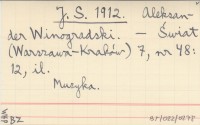 J. S. 1912. Aleksan-
der Winogradski. — Świat
(Warszawa-Kraków) 7, nr 48:
12, il.
Muzyka.
BZ